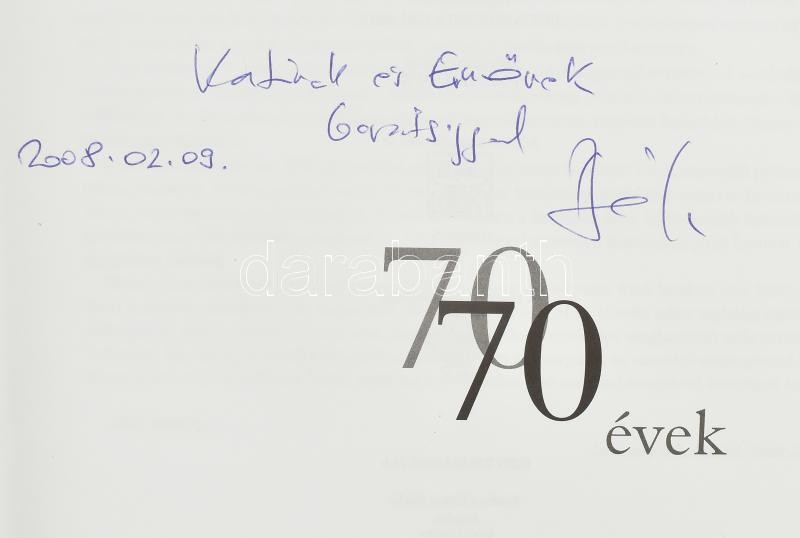 Katinak és Ernőnek
barátsággal
2008.02.09.
darabanth
70
70
évek